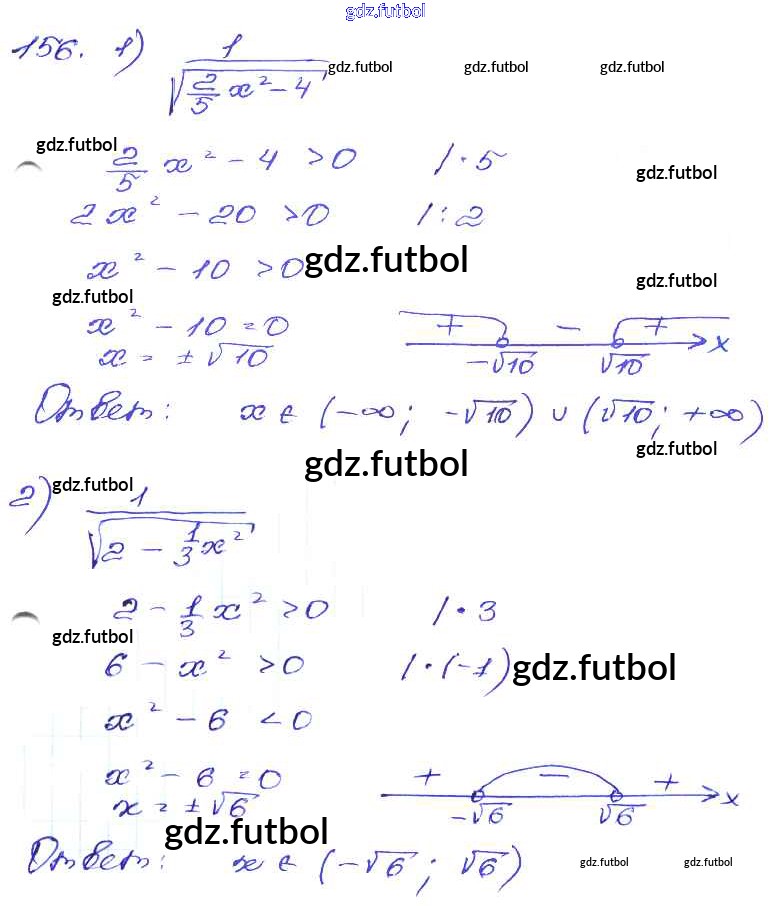 gdz.futbol
156. 1) 1/√(2/5 x² - 4) gdz.futbol gdz.futbol gdz.futbol
gdz.futbol
2/5 x² - 4 > 0 | · 5
gdz.futbol
2x² - 20 > 0 | : 2
x² - 10 > 0 gdz.futbol
gdz.futbol
gdz.futbol
x² - 10 = 0
+ - +
x = ± √10
-√10 √10 x
Ответ: x ∈ (-∞; -√10) ∪ (√10; +∞)
gdz.futbol
gdz.futbol
2) gdz.futbol
1/√(2 - 1/3 x²)
2 - 1/3 x² > 0 | · 3
gdz.futbol
6 - x² > 0 | · (-1) gdz.futbol
x² - 6 < 0
x² - 6 = 0
+ - +
x = ± √6
-√6 √6 x
gdz.futbol
Ответ: x ∈ (-√6; √6) gdz.futbol gdz.futbol